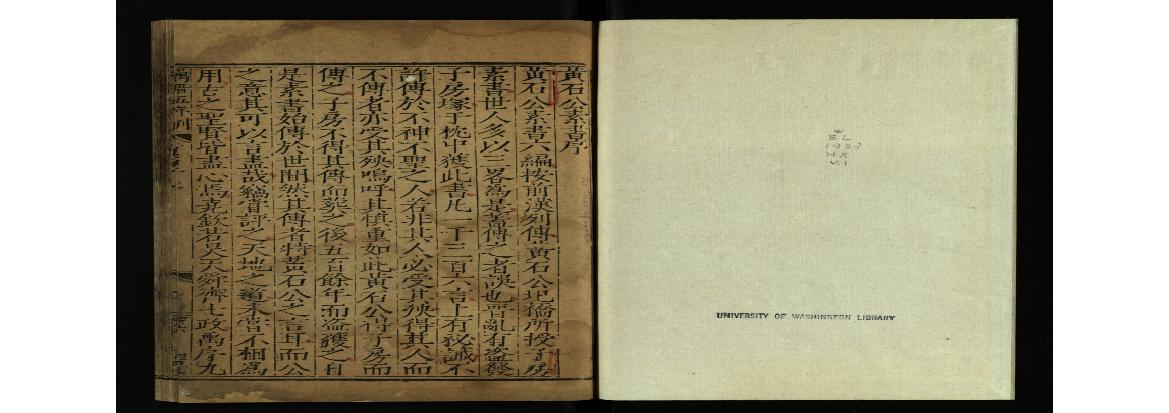 黃石公素書序
黃石公素書六編按前漢列傳黃石公圯橋所授子房
素書世人多以三畧為是蓋傳之者誤也晉亂有盜發
子房塚于枕中獲此書凡一千三百六言上有秘誡不
許傳於不神不聖之人若非其人必受其殃得其人而
不傳者亦受其殃嗚呼其慎重如此黃石公得子房而
傳之子房不得其傳而葬之後五百餘年而盜獲之自
是素書始傳於世間然其傳者特黃石公之言耳而公
之意其可以言盡哉竊嘗評之天地之道未嘗不相為
用古之聖賢皆盡心焉堯欽若昊天舜齊七政禹序九
萬曆五年刊
BL
UNIVERSITY OF WASHINGTON LIBRARY